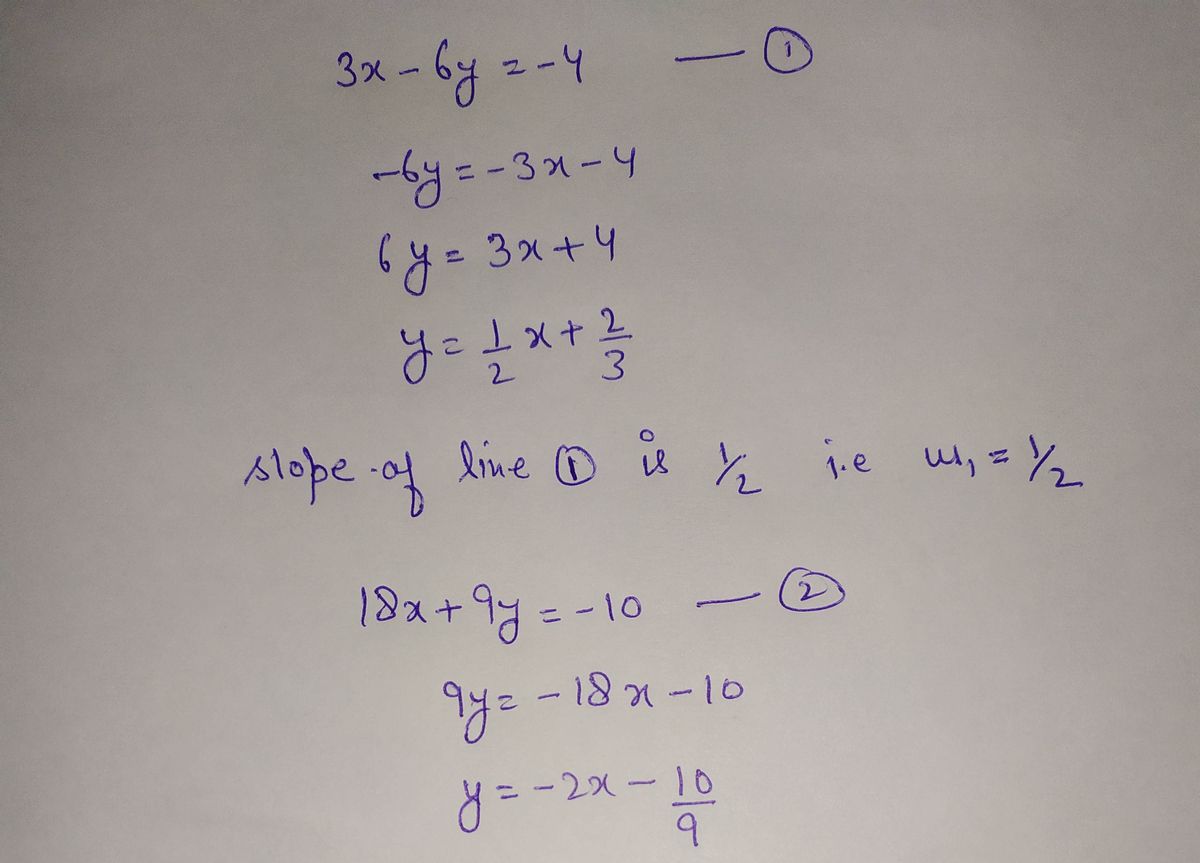 3x - 6y = -4 — ①
-6y = -3x - 4
6y = 3x + 4
y = 1/2 x + 2/3
slope of line ① is 1/2 i.e m₁ = 1/2
18x + 9y = -10 — ②
9y = -18x - 10
y = -2x - 10/9